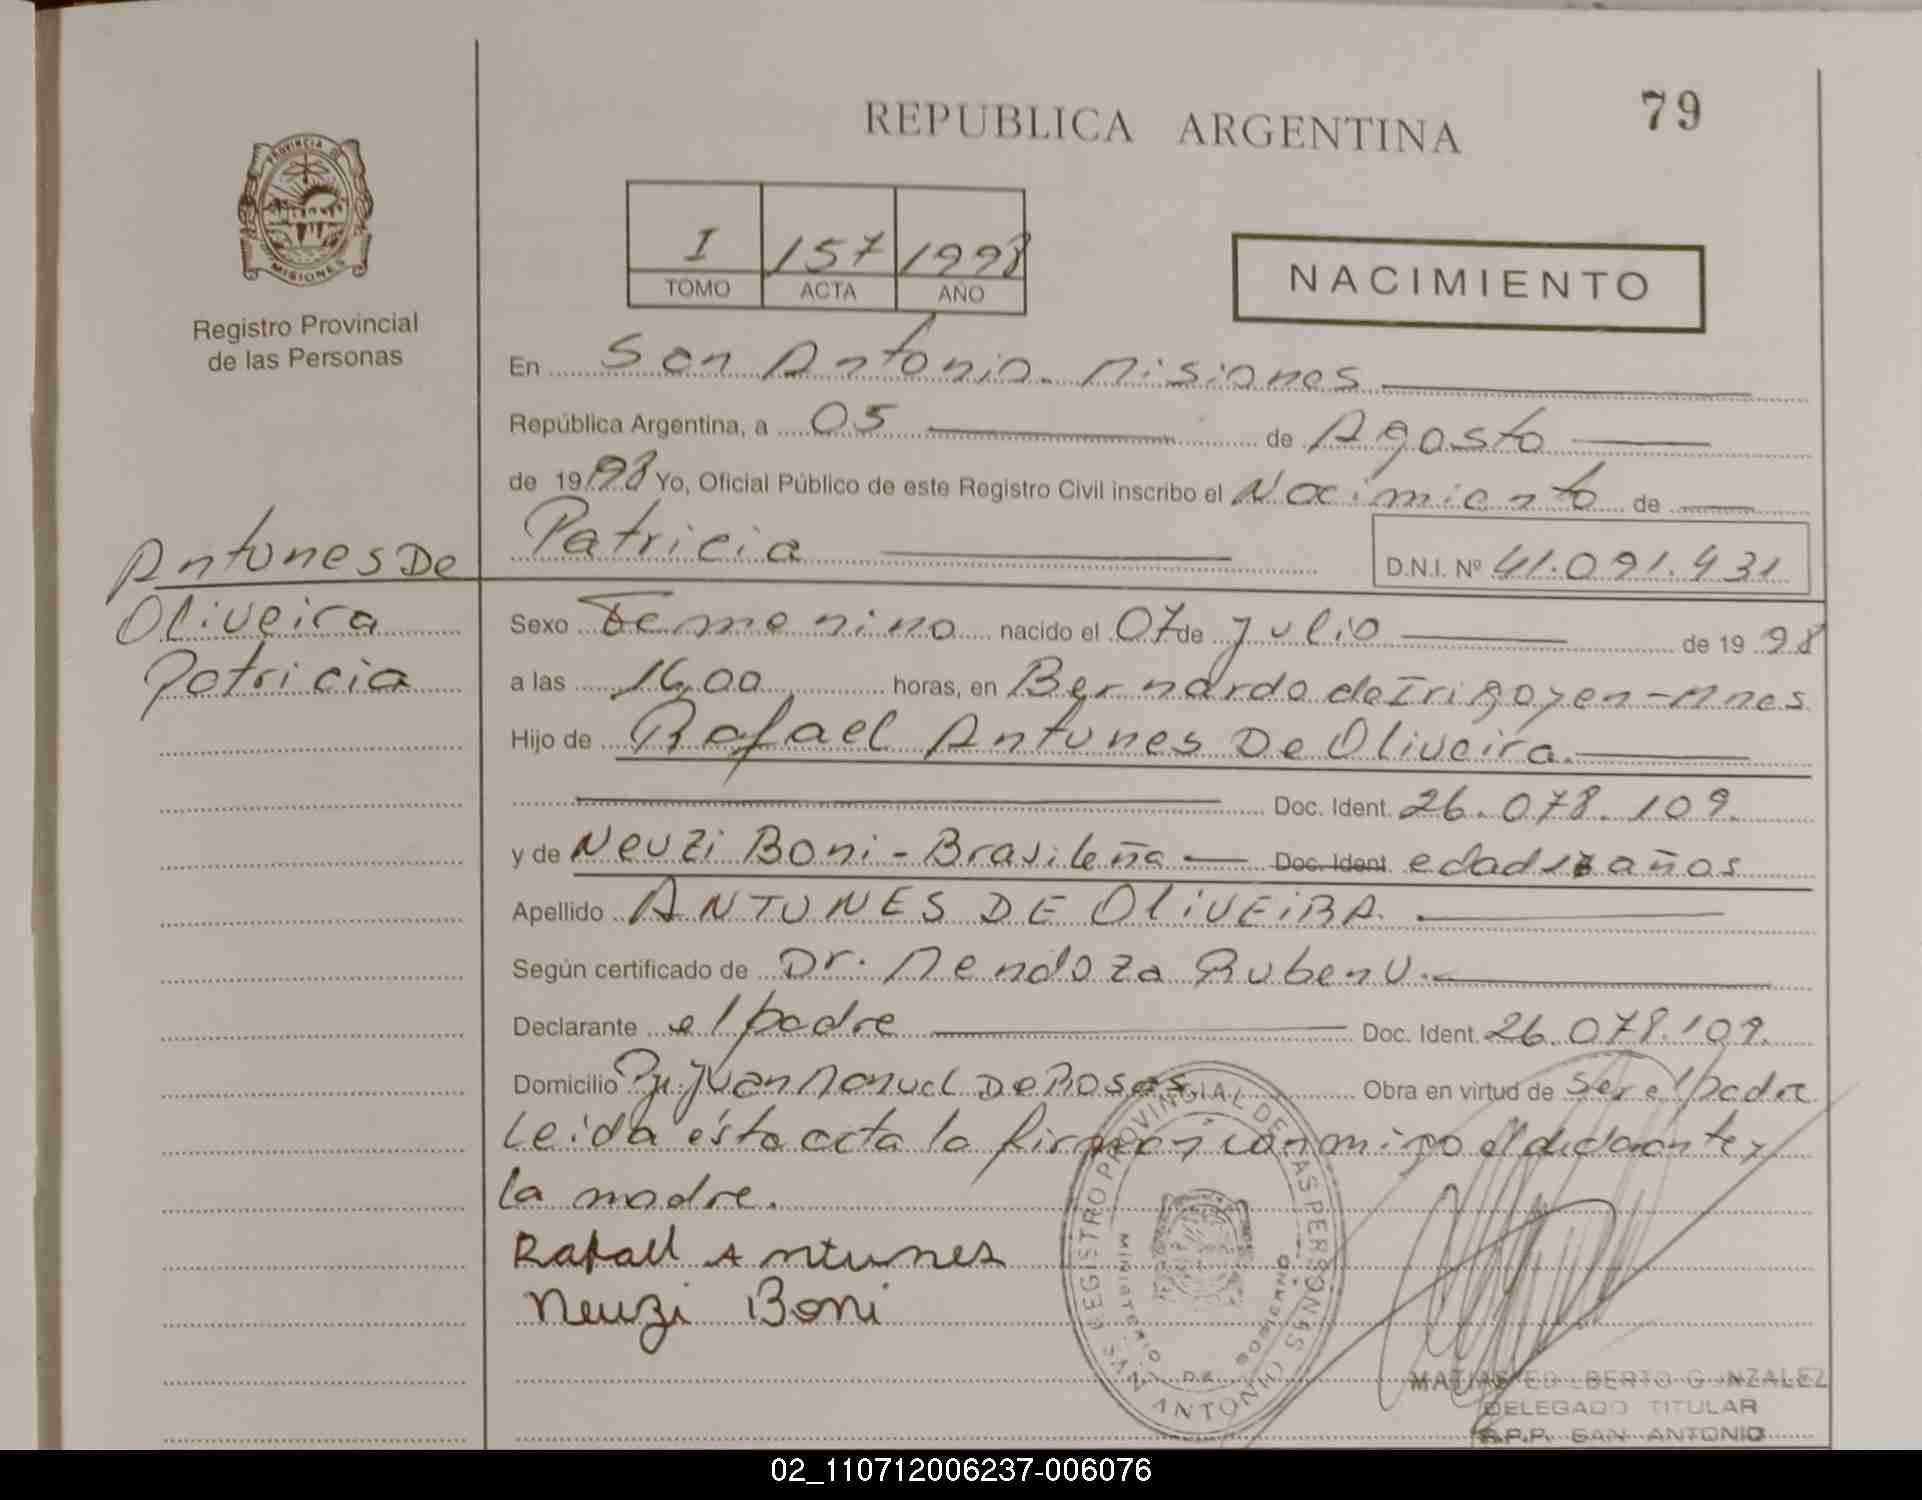 REPUBLICA ARGENTINA
79
PROVINCIA DE
MISIONES
Registro Provincial
de las Personas
I 157 1998
TOMO ACTA AÑO
NACIMIENTO
En San Antonio. Misiones
República Argentina, a 05 de Agosto
de 1998 Yo, Oficial Público de este Registro Civil inscribo el Nacimiento de
Patricia
D.N.I. Nº 41.091.431
Antunes De
Oliveira
Patricia
Sexo Femenino nacido el 07 de Julio de 1998
a las 16,00 horas, en Bernardo de Irigoyen - Mnes
Hijo de Rafael Antunes De Oliveira.
Doc. Ident. 26.078.109.
y de Neuzi Boni - Brasileña Doc. Ident edad años
Apellido ANTUNES DE OliVEiRA.
Según certificado de Dr. Mendoza Ruben
Declarante el padre Doc. Ident. 26.078.109.
Domicilio Juan Manuel De Rosas Obra en virtud de ser el padre
Leida ésta acta la firman conmigo el declarante y
la madre.
Rafael Antunes
Neuzi Boni
REGISTRO PROVINCIAL DE LAS PERSONAS
MINISTERIO DE GOBIERNO
SAN ANTONIO
GONZALEZ
DELEGADO TITULAR
R.P.P. SAN ANTONIO
02_110712006237-006076